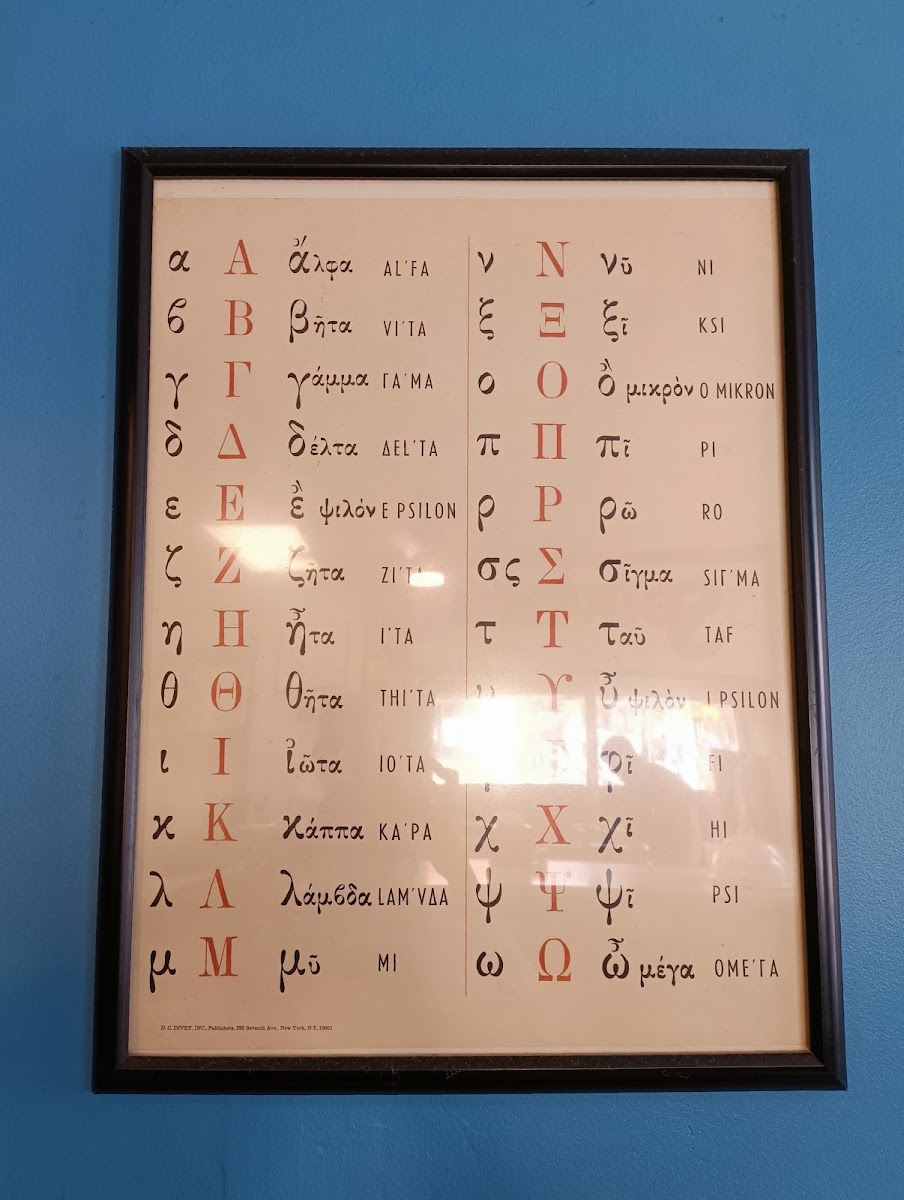 α Α ἄλφα AL'FA
ϐ Β βῆτα VI'TA
γ Γ γάμμα ΓA'MA
δ Δ δέλτα ΔEL'TA
ε Ε ἒ ψιλόν E PSILON
ζ Ζ ζῆτα ZI'TA
η Η ἦτα I'TA
θ Θ θῆτα THI'TA
ι Ι ἰῶτα IO'TA
κ Κ κάππα KA'PA
λ Λ λάμϐδα LAM'VΔA
μ Μ μῦ MI
D. C. DIVRY, INC., Publishers, 293 Seventh Ave., New York, N.Y. 10001
ν Ν νῦ NI
ξ Ξ ξῖ KSI
ο Ο ὂ μικρὸν O MIKRON
π Π πῖ PI
ρ Ρ ρῶ RO
σς Σ σῖγμα SIΓ'MA
τ Τ ταῦ TAF
υ Υ ὖ ψιλὸν I PSILON
φῖ FI
χ Χ χῖ HI
ψ Ψ ψῖ PSI
ω Ω ὦ μέγα OME'ΓA